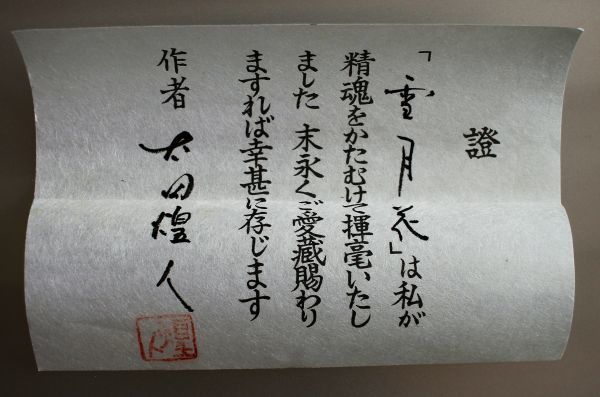 證
「雪月花」は私が
精魂をかたむけて揮毫いたし
ました 末永くご愛蔵賜わり
ますれば幸甚に存じます
作者 太田煌人